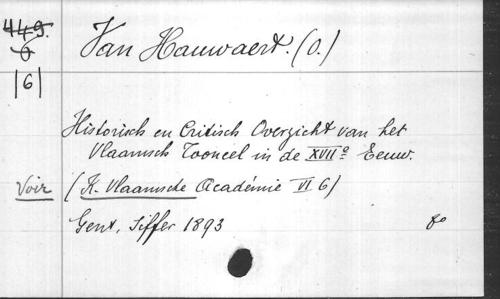 449.
6
|6|
Van Hauwaert. (O.)
Historisch en Critisch Overzicht van het
Vlaamsch Tooneel in de XVIIe Eeuw.
Voir (K. Vlaamsche Académie VI 6)
Gent, Siffer 1893 8o